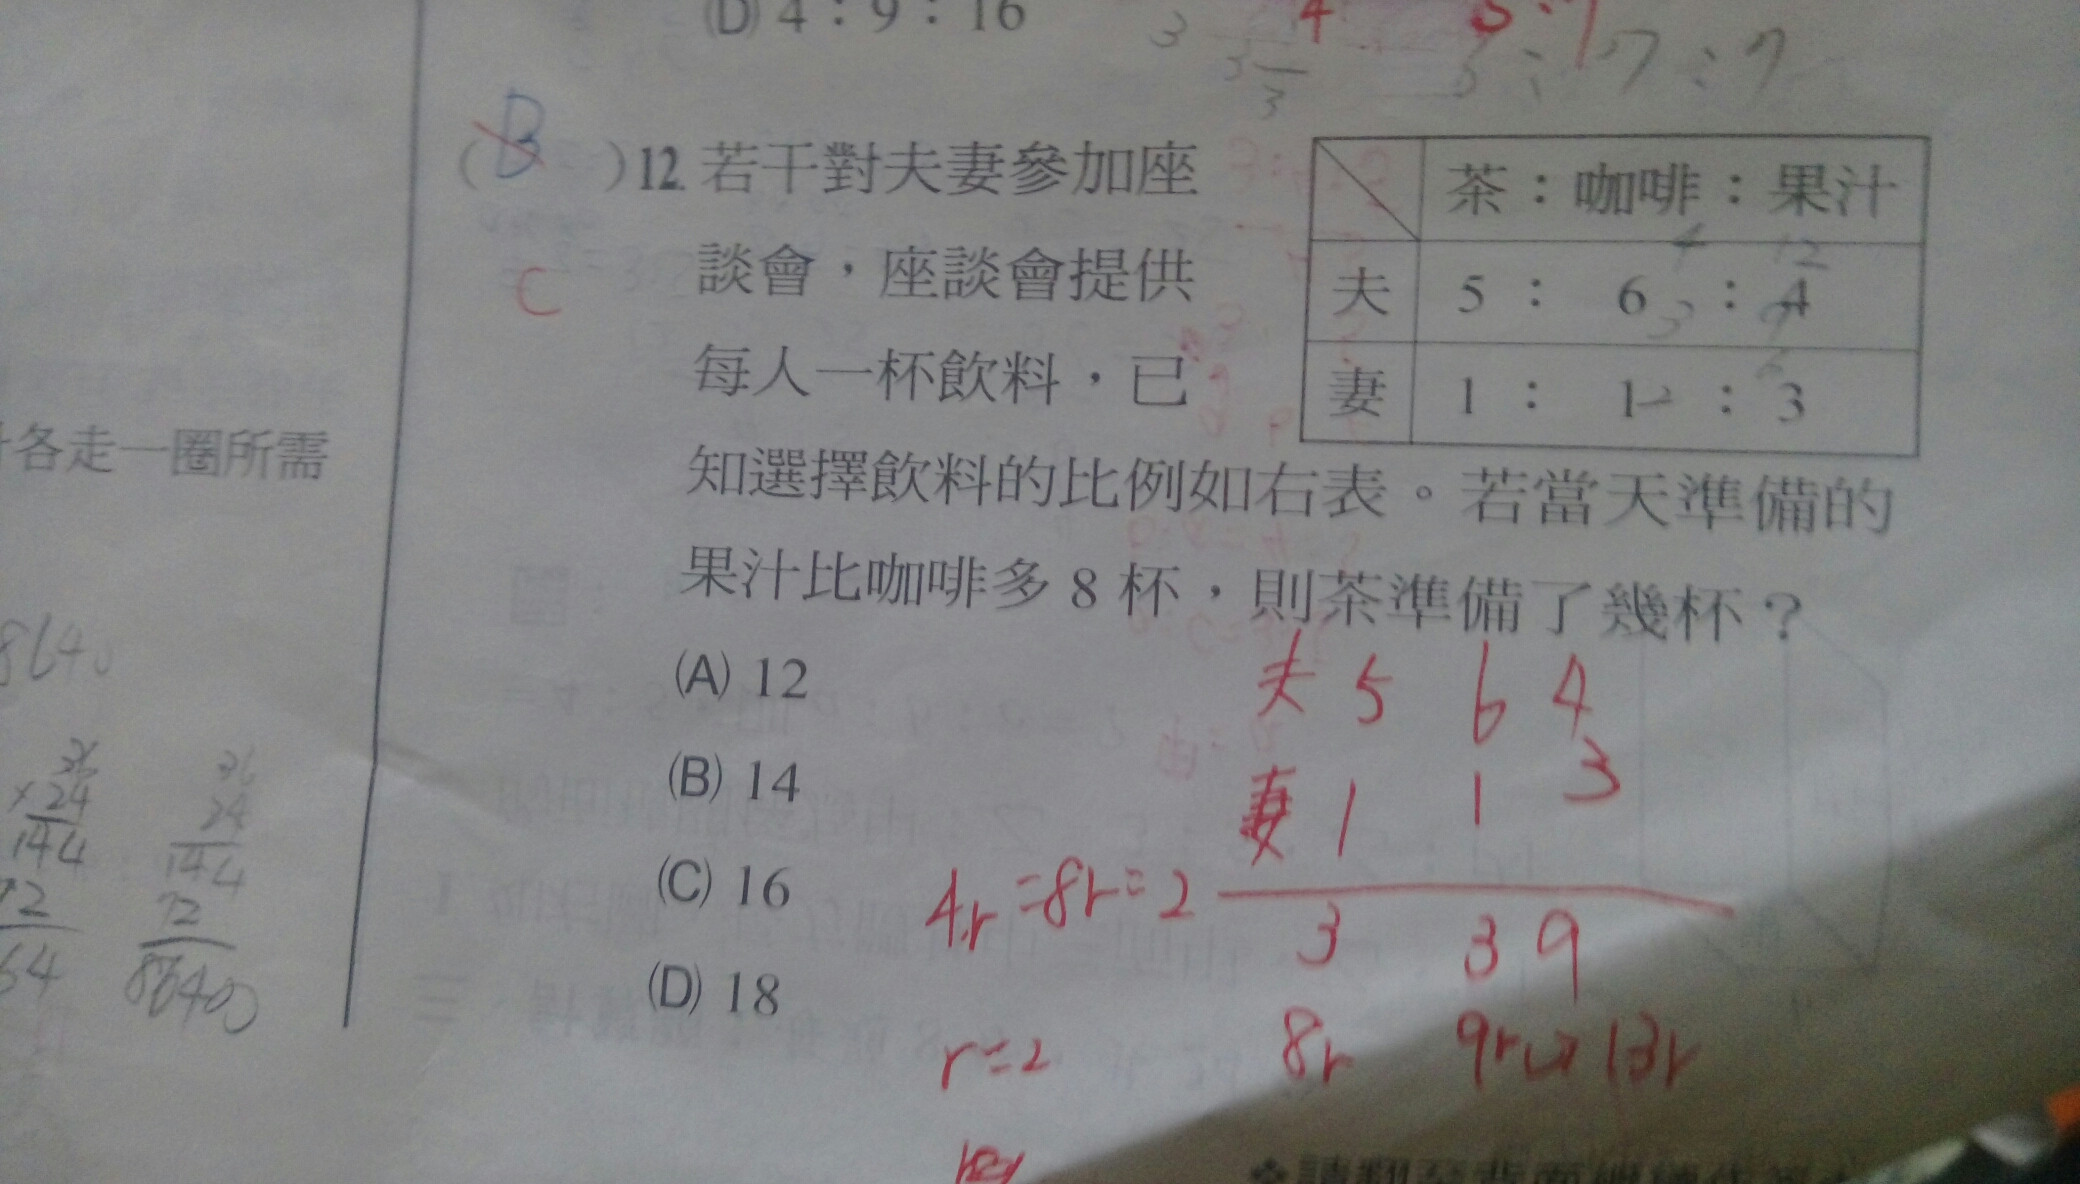 (D) 4：9：16
4 5：7
3
3
3
5：7：7
(B)12. 若干對夫妻參加座
談會，座談會提供
每人一杯飲料，已
知選擇飲料的比例如右表。若當天準備的
果汁比咖啡多 8 杯，則茶準備了幾杯？
C
茶：咖啡：果汁
4 12
夫 5： 6 ： 4
3 9
妻 1： 1 ： 3
2
(A) 12
(B) 14
(C) 16
(D) 18
夫 5 6 4
妻 1 1 3
4r=8r=2
3 3 9
r=2
8r 9r 13r
各走一圈所需
8640
36
×24
144
72
64
36
24
144
72
86400